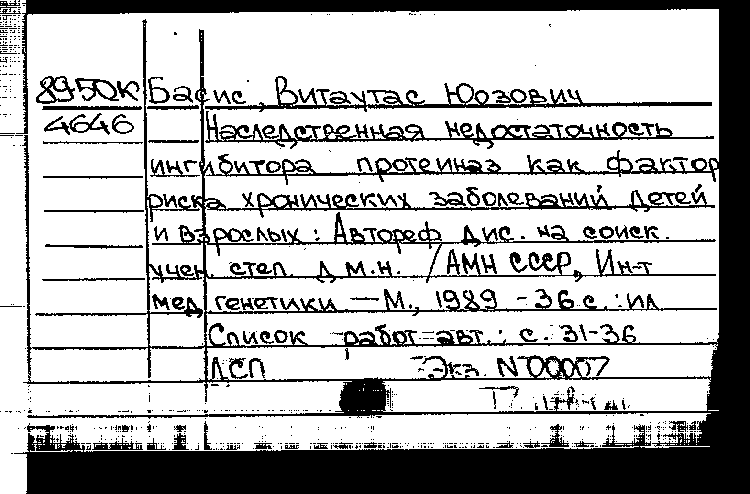 8950К Басис, Витаутас Юозович
4646 Наследственная недостаточность
ингибитора протеиназ как фактор
риска хронических заболеваний детей
и взрослых: Автореф дис. на соиск.
учен. степ. д м.н. /АМН СССР, Ин-т
мед генетики — М., 1989 - 36 с. : ил
Список работ авт.: с. 31-36
ДСП Экз. N 00007